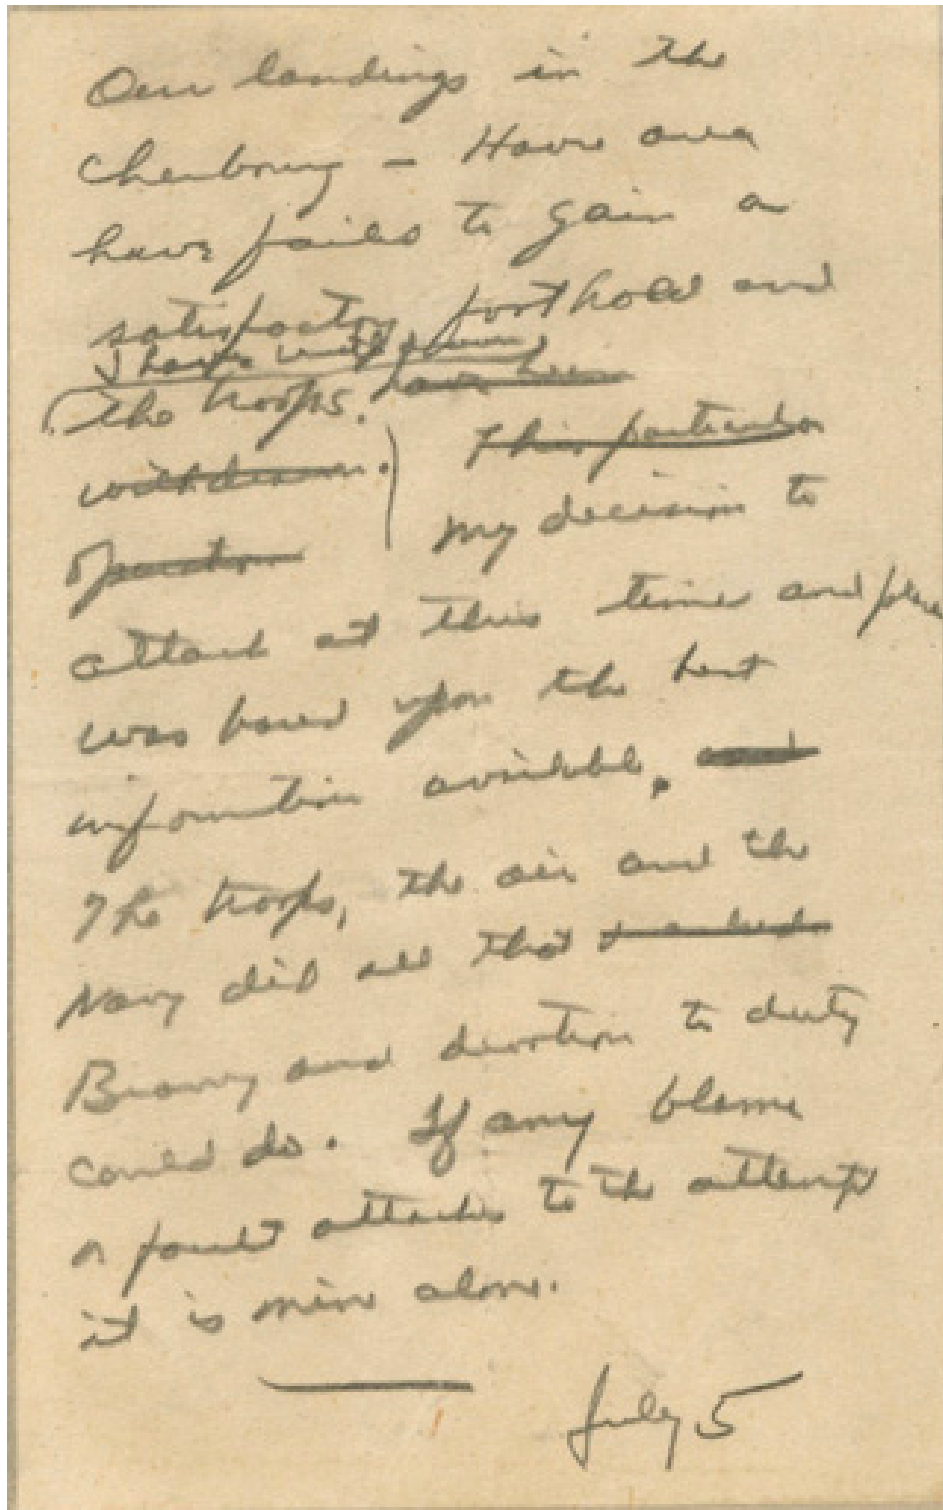 Our landings in the
Cherbourg - Havre area
have failed to gain a
satisfactory foothold and
I have withdrawn
the troops. have been
withdrawn. This particular
operation my decision to
attack at this time and place
was based upon the best
information available. and
The troops, the air and the
Navy did all that
Bravery and devotion to duty
could do. If any blame
or fault attaches to the attempt
it is mine alone.
July 5